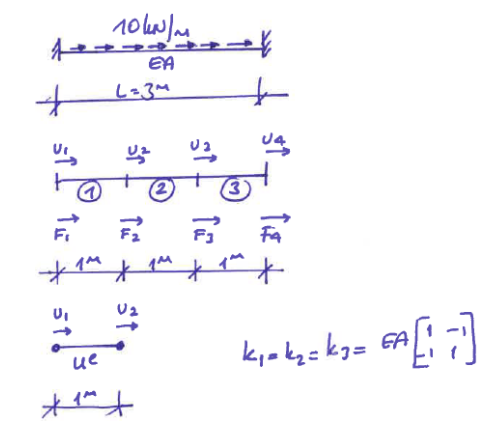 10 kN/m
EA
L=3m
U1 U2 U2 U4
1 2 3
F1 F2 F3 F4
1m 1m 1m
U1 U2
ue
k1=k2=k3= EA [1 -1
-1 1]
1m